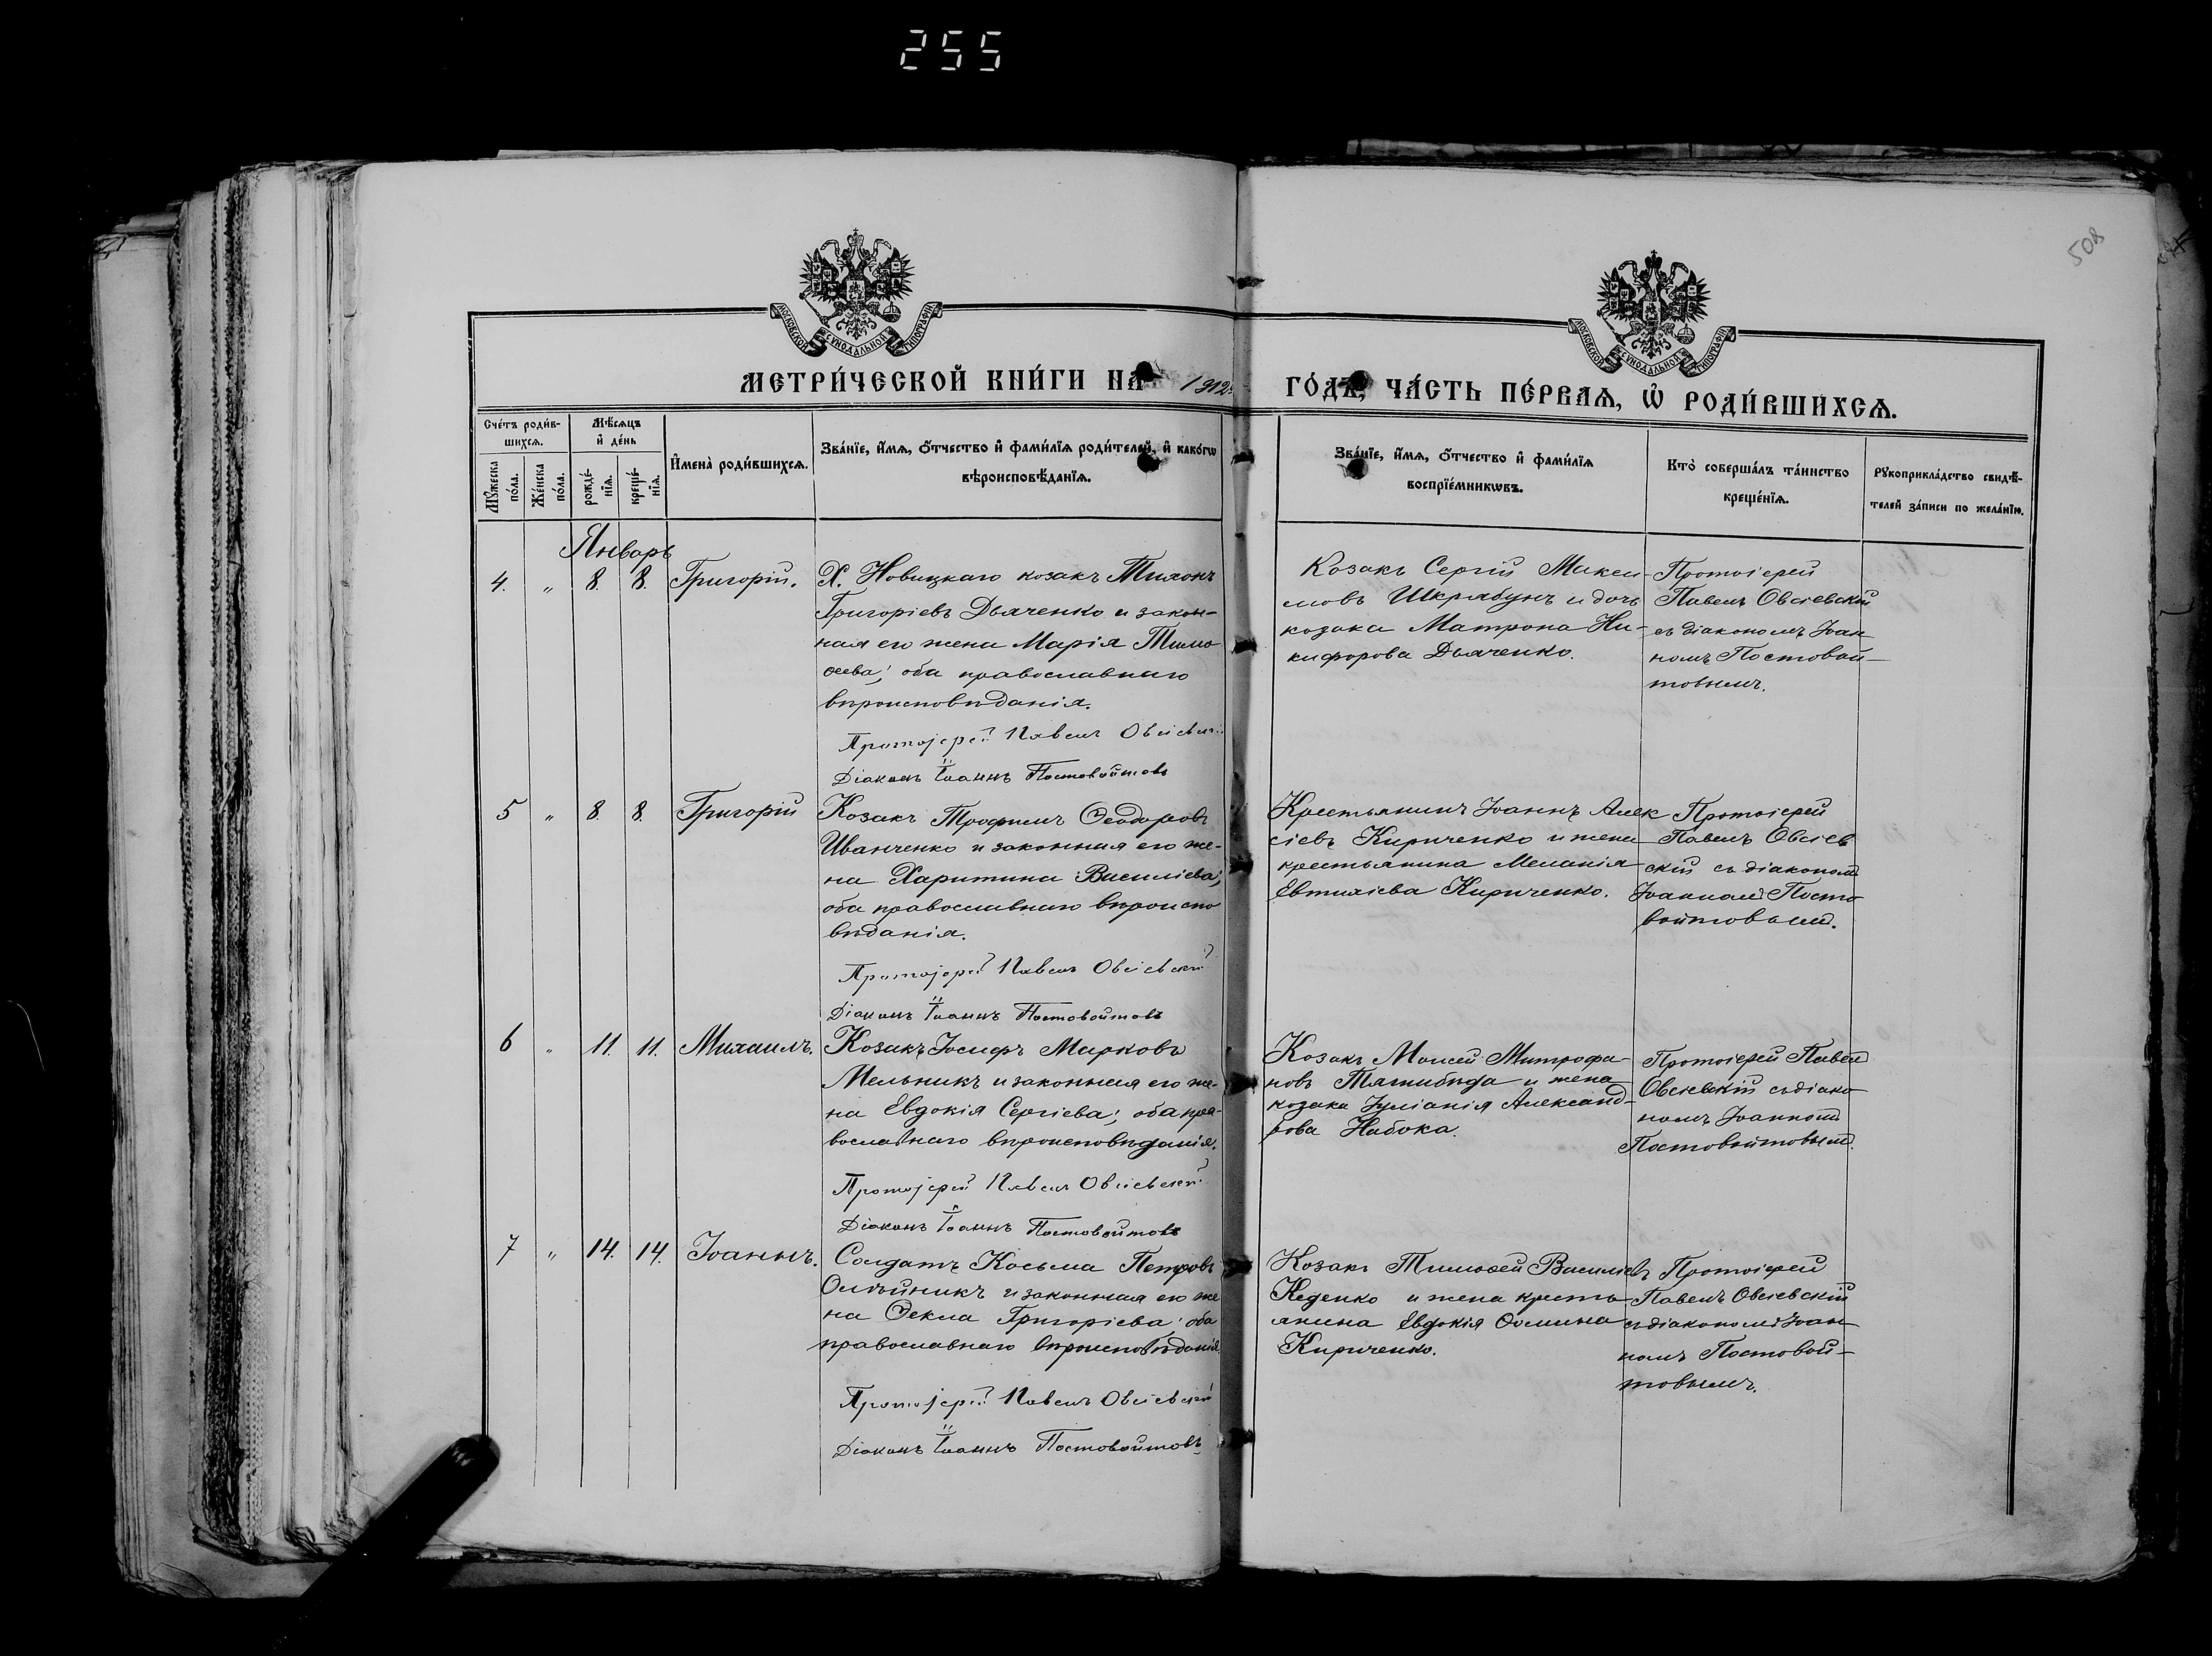 255
508
МОСКОВСКОЙ СУНОДАЛЬНОЙ ТИПОГРАФІИ
МОСКОВСКОЙ СУНОДАЛЬНОЙ ТИПОГРАФІИ
МЕТРИ́ЧЕСКОЙ КНИ́ГИ НА 1912
ГО́ДЪ, ЧА́СТЬ ПЕ́РВАѦ, Ѡ҆ РОДИ́ВШИХСѦ.
Сче́тъ роди́в-
шихсѧ.
Мѣ́сѧцъ
и҆ де́нь
Мꙋ́жеска
по́ла.
Же́нска
по́ла.
рожде́-
нїѧ.
креще́-
нїѧ.
И҆мена̀ роди́вшихсѧ.
Зва́нїе, и҆́мѧ, ѻ҆́тчество и҆ фами́лїѧ роди́телей, и҆ како́гѡ
вѣроисповѣ́данїѧ.
Зва́нїе, и҆́мѧ, ѻ҆́тчество и҆ фами́лїѧ
воспрїе́мникѡвъ.
Кто̀ соверша́лъ та́инство
креще́нїѧ.
Рꙋкоприкла́дство свидѣ́-
телей за́писи по жела́нїю.
Январь
4. " 8. 8. Григорій.
Х. Новицкаго козакъ Тихонъ
Григоріевъ Дьяченко и закон-
ная его жена Марія Тимо
ѳеева; оба православнаго
вѣроисповѣданія.
Протоіерей Павелъ Овсіевскій
Діаконъ Іоаннъ Постовойтовъ
Козакъ Сергій Макси-
мовъ Шкрябунъ и дочь
козака Матрона Ни-
кифорова Дьяченко.
Протоіерей
Павелъ Овсіевскій
съ діакономъ Іоан
номъ Постовой-
товымъ.
5 " 8. 8. Григорій
Козакъ Трофимъ Ѳеодоровъ
Иванченко и законная его же-
на Харитина Василіева;
оба православнаго вѣроиспо
вѣданія.
Протоіерей Павелъ Овсіевскій
Діаконъ Іоаннъ Постовойтовъ
Крестьянинъ Іоаннъ Алек
сіевъ Кириченко и жена
крестьянина Меланія
Евтихіева Кириченко.
Протоіерей
Павелъ Овсіев
скій съ діакономъ
Іоанномъ Посто
войтовымъ.
6 " 11. 11. Михаилъ.
Козакъ Іосифъ Марковъ
Мельникъ и законная его же-
на Евдокія Сергіева; оба пра-
вославнаго вѣроисповѣданія.
Протоіерей Павелъ Овсіевскій
Діаконъ Іоаннъ Постовойтовъ
Козакъ Моисей Митрофа-
новъ Тягнибѣда и жена
козака Іуліанія Александ-
рова Набока.
Протоіерей Павелъ
Овсіевскій съ діако
номъ Іоанномъ
Постовойтовымъ.
7 " 14. 14. Іоаннъ.
Солдатъ Косьма Петровъ
Олѣйникъ и законная его же
на Ѳекла Григоріева; оба
православнаго вѣроисповѣданія.
Протоіерей Павелъ Овсіевскій
Діаконъ Іоаннъ Постовойтовъ
Козакъ Тимоѳей Василіевъ
и жена кресть-
янина Евдокія Ѳомина
Кириченко.
Протоіерей
Павелъ Овсіевскій
съ діакономъ Іоан
номъ Постовой-
товымъ.